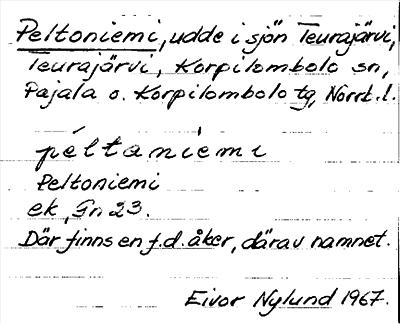 Peltoniemi, udde i sjön Teurajärvi,
Teurajärvi, Korpilombolo sn,
Pajala o. Korpilombolo tg, Norrb. l.
péltaniemi
Peltoniemi
ek, Gn 23.
Där finns en f.d. åker, därav namnet.
Eivor Nylund 1967.